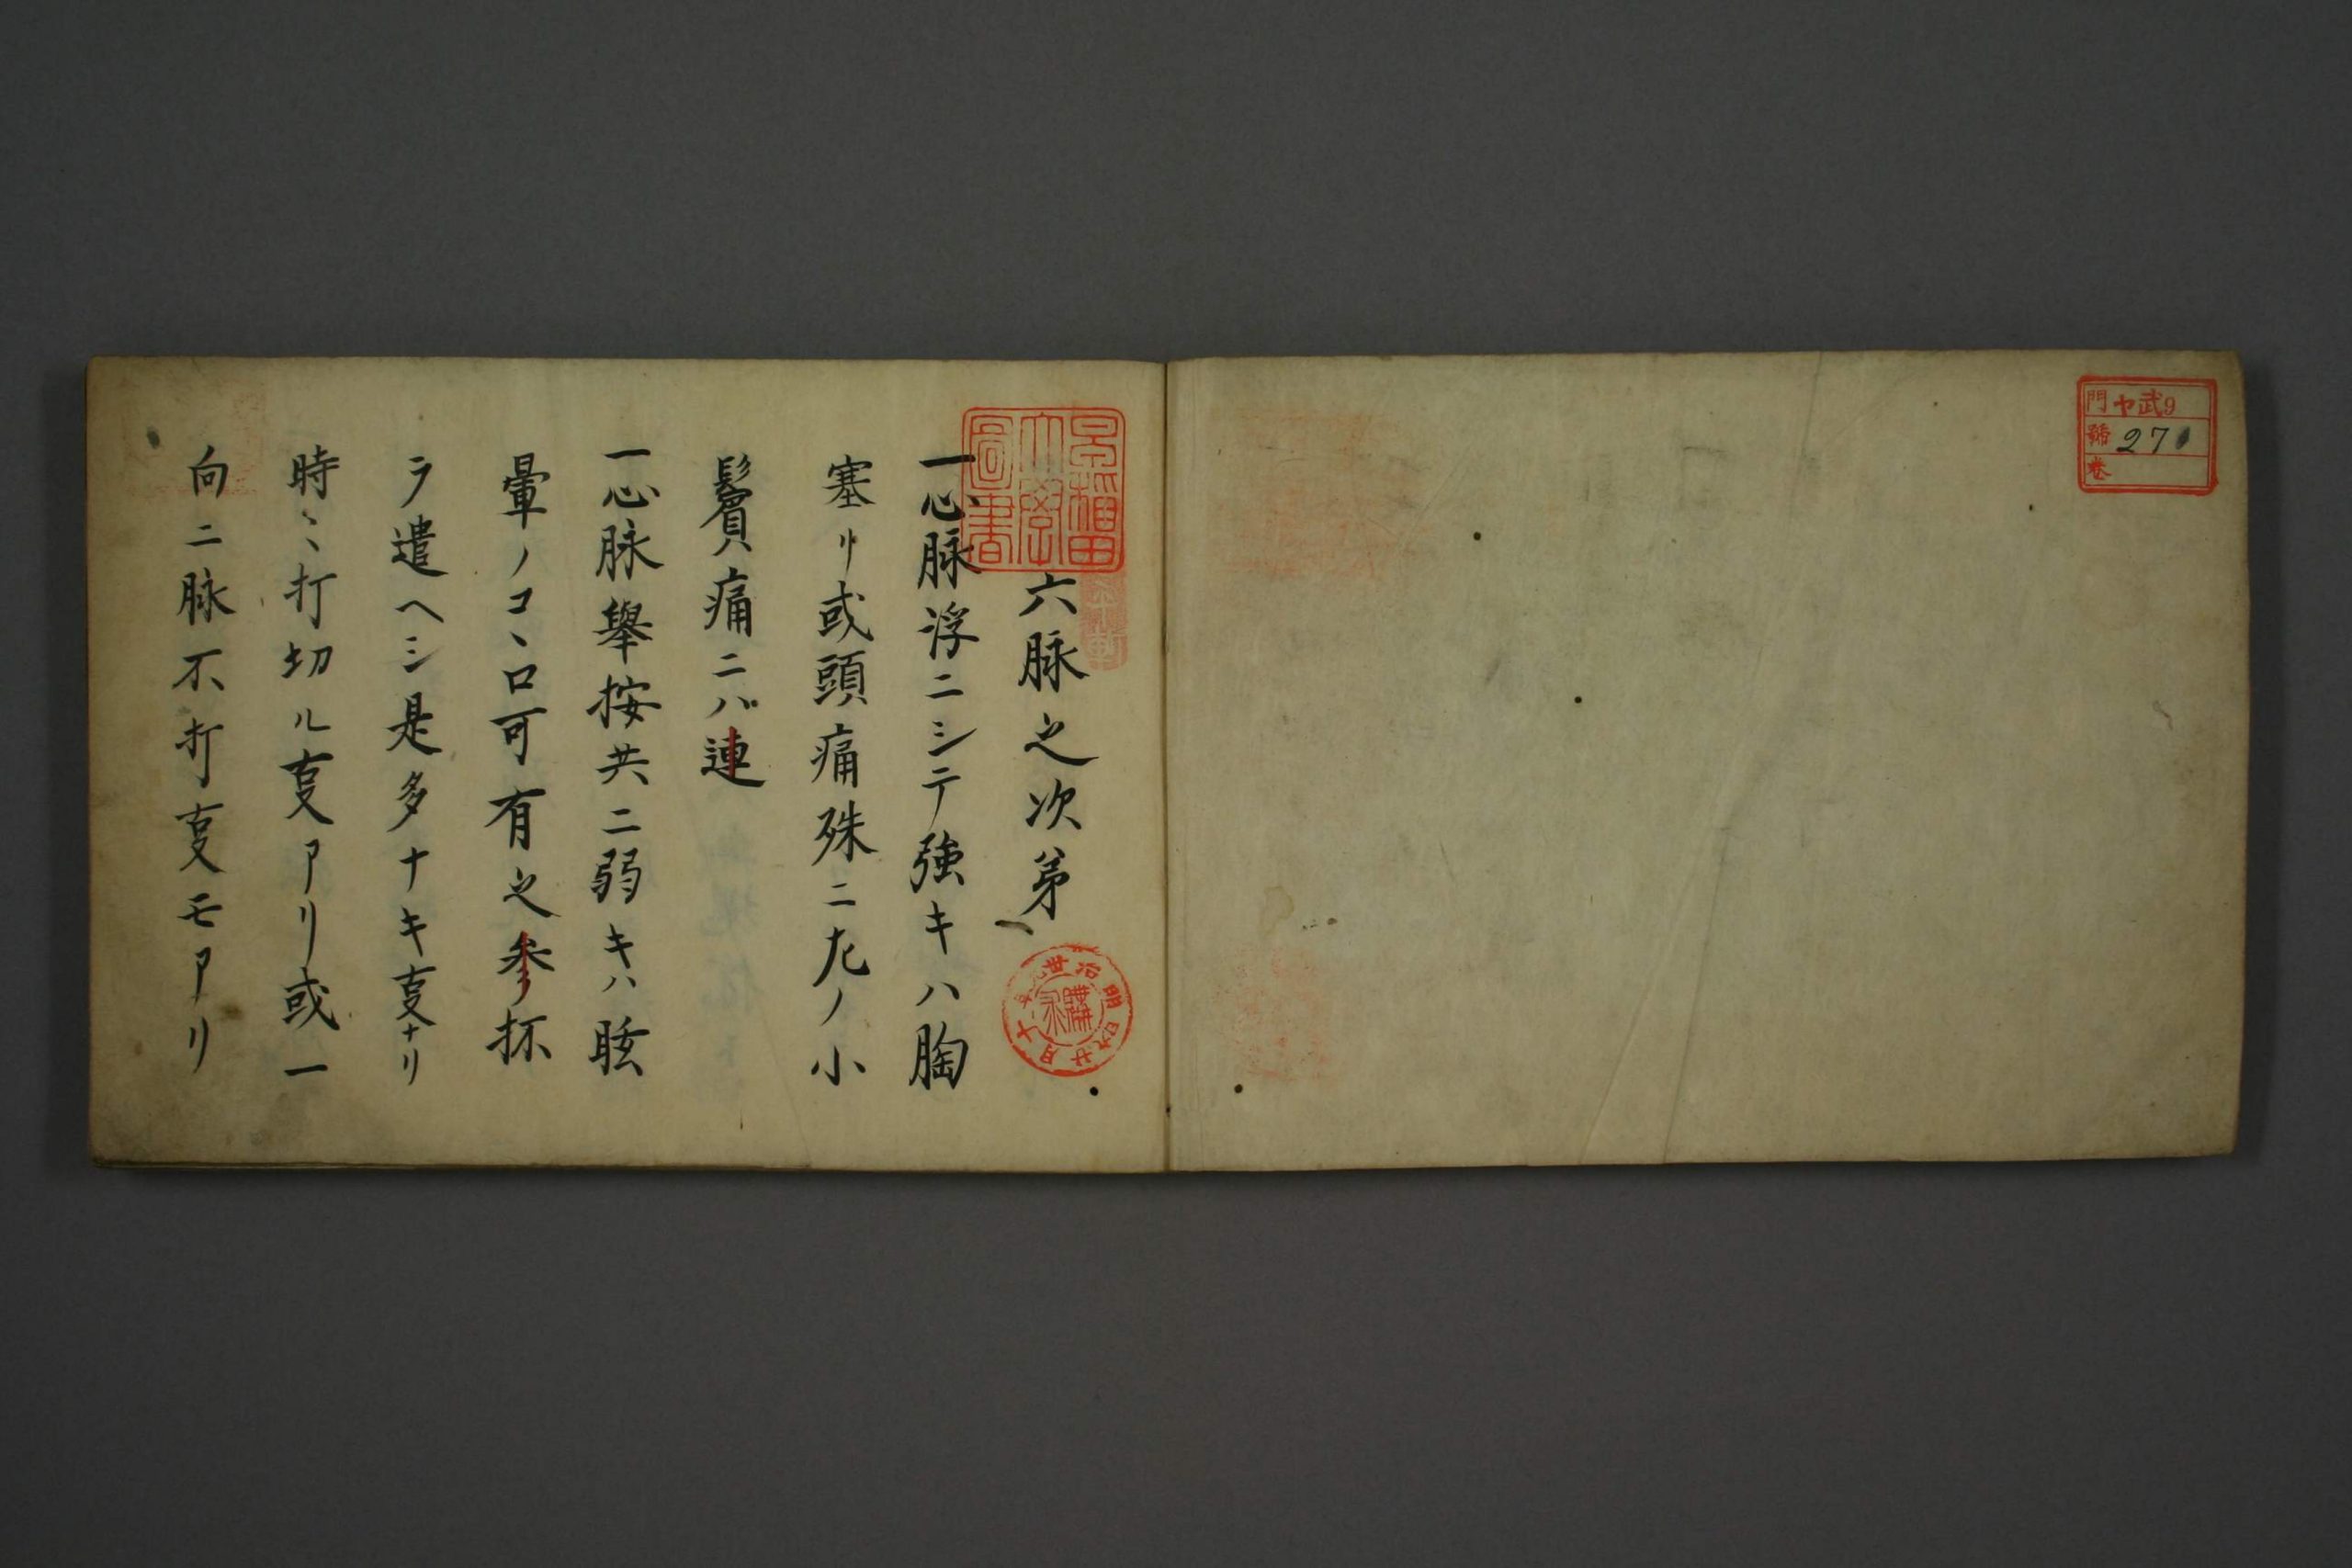 門 ヤ武9
號 271
卷
早稲田大學圖書
六脉之次第
一心脉浮ニシテ強キハ胸
塞リ或頭痛殊ニ左ノ小
鬢痛ニハ連
一心脉舉按共ニ弱キハ眩
暈ノコヽロ可有之参抔
ラ遣ヘシ是多ナキ㕝ナリ
時〻打切ル㕝アリ或一
向ニ脉不打㕝モアリ